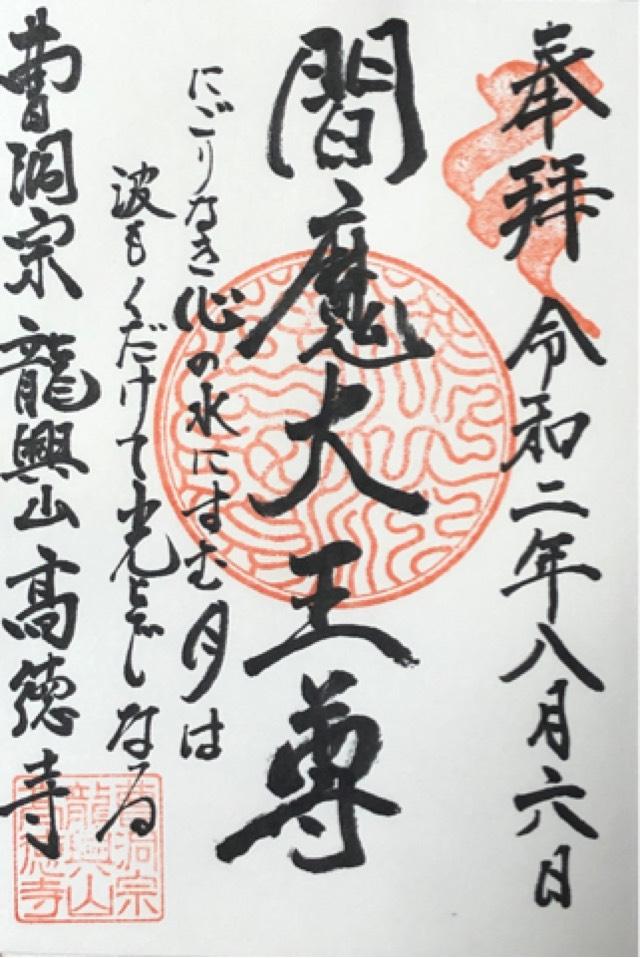 奉拝 令和二年八月六日
閻魔大王尊
にごりなき心の水にすむ月は
波もくだけて光とぞなる
曹洞宗 龍興山 高徳寺
曹洞宗
龍興山
高徳寺